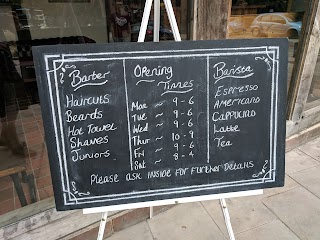 Barber
Haircuts
Beards
Hot Towel
Shaves
Juniors
Opening
Times
Mon ~ 9 - 6
Tue ~ 9 - 6
Wed ~ 9 - 6
Thur ~ 10 - 9
Fri ~ 9 - 6
Sat ~ 8 - 4
Barista
Espresso
Americano
Cappucino
Latte
Tea
Please ask inside for further details